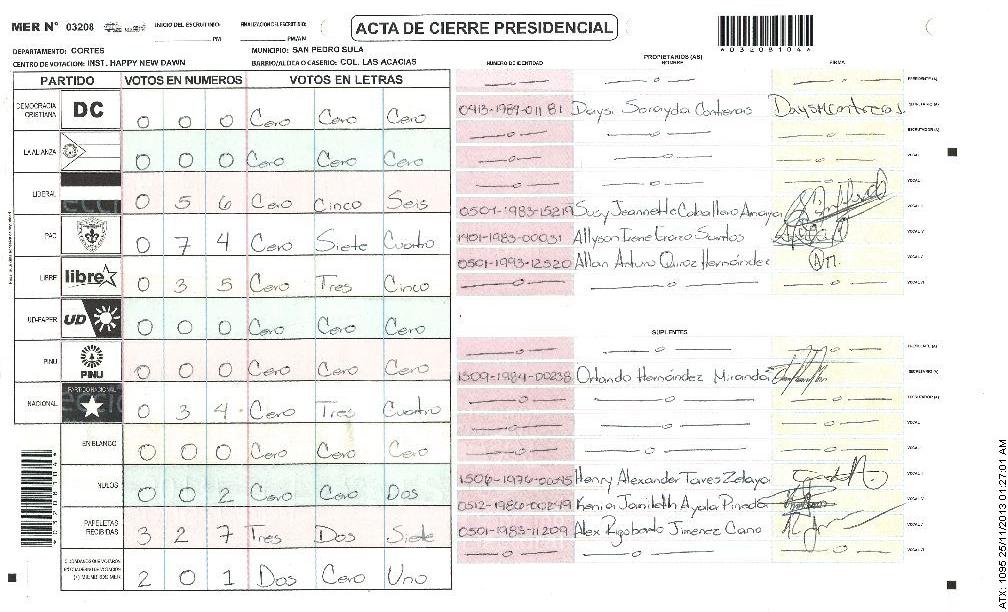 MER Nº 03208 INICIO DEL ESCRUTINIO: PM FINALIZACION DEL ESCRUTINIO: PM/AM
ACTA DE CIERRE PRESIDENCIAL
*03208104*
DEPARTAMENTO: CORTES MUNICIPIO: SAN PEDRO SULA
CENTRO DE VOTACION: INST. HAPPY NEW DAWN BARRIO/ALDEA O CASERIO: COL. LAS ACACIAS
PARTIDO VOTOS EN NUMEROS VOTOS EN LETRAS
DEMOCRACIA CRISTIANA DC 0 0 0 Cero Cero Cero
LA ALIANZA 0 0 0 Cero Cero Cero
LIBERAL 0 5 6 Cero Cinco Seis
PAC 0 7 4 Cero Siete Cuatro
LIBRE libre 0 3 5 Cero Tres Cinco
UD-FAPER UD 0 0 0 Cero Cero Cero
PINU PINU 0 0 0 Cero Cero Cero
NACIONAL PARTIDO NACIONAL 0 3 4 Cero Tres Cuatro
EN BLANCO 0 0 0 Cero Cero Cero
NULOS 0 0 2 Cero Cero Dos
PAPELETAS RECIBIDAS 3 2 7 Tres Dos Siete
2 0 1 Dos Cero Uno
NUMERO DE IDENTIDAD PROPIETARIOS (AS) NOMBRE FIRMA
PRESIDENTE (A)
0413-1989-01181 Daysi Sarayda Contreras SECRETARIO (A)
ESCRUTADOR (A)
VOCAL I
VOCAL II
0501-1983-15219 Susy Jeannette Caballero Amaya
1401-1983-00031 Allyson Irene Erazo Santos
0501-1993-12520 Allan Arturo Quiroz Hernández
SUPLENTES
PRESIDENTE (A)
1509-1984-00238 Orlando Hernández Miranda SECRETARIO (A)
ESCRUTADOR (A)
1506-1976-00045 Henry Alexander Tares Zelaya
0512-1986-00299 Kenia Jamileth Ayala Pineda
0501-1983-11209 Alex Rigoberto Jimenez Cano
ATX: 1095 25/11/2013 01:27:01 AM